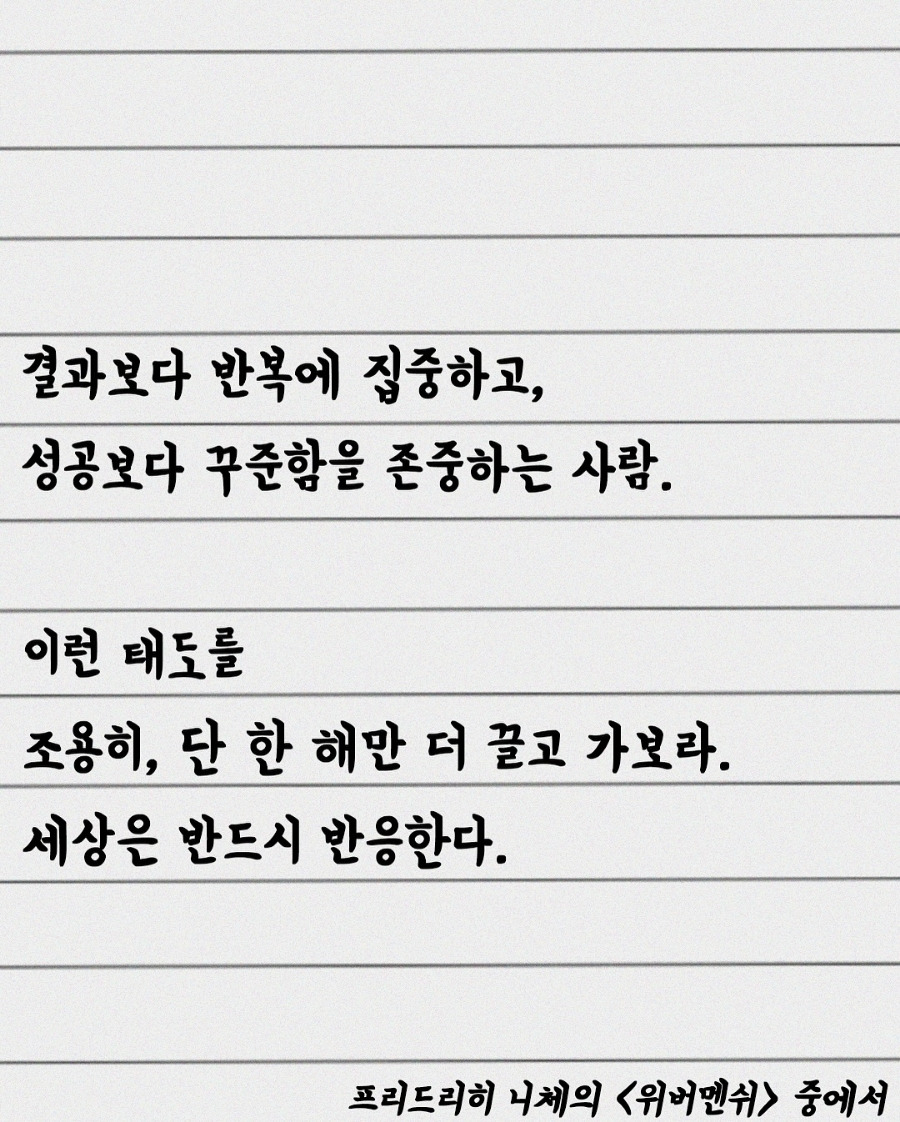 결과보다 반복에 집중하고,
성공보다 꾸준함을 존중하는 사람.
이런 태도를
조용히, 단 한 해만 더 끌고 가보라.
세상은 반드시 반응한다.
프리드리히 니체의 <위버멘쉬> 중에서